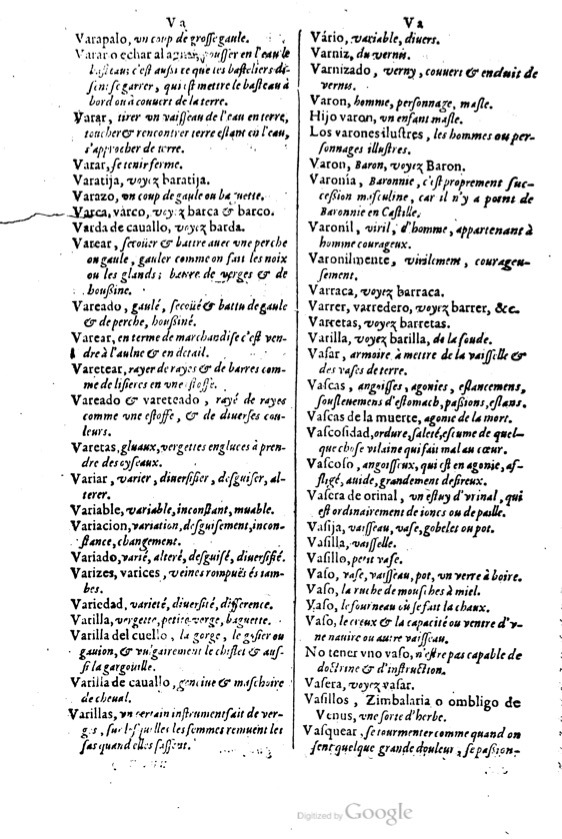 Va
Varapalo, vn coup de grosse gaule.
Varar o echar al agua, pousser en l'eau le
basteau: c'est aussi ce que les basteliers di-
sent se garrer, qui est mettre le basteau à
bord ou à couuert de la terre.
Varar, tirer vn vaisseau de l'eau en terre,
toucher & rencontrer terre estant en l'eau,
s'approcher de terre.
Varar, se tenir ferme.
Varatija, voyez baratija.
Varazo, vn coup de gaule ou baguette.
Varca, varco, voyez barca & barco.
Varda de cauallo, voyez barda.
Varear, secoüer & battre auec vne perche
ou gaule, gauler comme on fait les noix
ou les glands; battre de verges & de
houßine.
Vareado, gaulé, secoüé & battu de gaule
& de perche, houßiné.
Varear, en terme de marchandise c'est ven-
dre à l'aulne & en detail.
Varetear, rayer de rayes & de barres com-
me de lisieres en vne estoffe.
Vareado & vareteado, rayé de rayes
comme vne estoffe, & de diuerses cou-
leurs.
Varetas, gluaux, vergettes engluces à pren-
dre des oyseaux.
Variar, varier, diuersifier, desguiser, al-
terer.
Variable, variable, inconstant, muable.
Variacion, variation, desguisement, incon-
stance, changement.
Variado, varié, alteré, desguisé, diuersifié.
Varizes, varices, veines rompuës és iam-
bes.
Variedad, varieté, diuersité, difference.
Varilla, vergette, petite verge, baguette.
Varilla del cuello, la gorge, le gisier ou
gauion, & vulgairement le chiflet & auf-
si la gargouille.
Varilia de cauallo, genciue & maschoire
de cheual.
Varillas, vn certain instrument fait de ver-
ges, sur lesquelles les femmes remuent les
sas quand elles sassent.
Va
Vário, variable, diuers.
Varniz, du vernis.
Varnizado, verny, couuert & enduit de
vernis.
Varon, homme, personnage, masle.
Hijo varon, vn enfant masle.
Los varones ilustres, les hommes ou per-
sonnages illustres.
Varon, Baron, voyez Baron.
Varonía, Baronnie, c'est proprement suc-
ceßion masculine, car il n'y a point de
Baronnie en Castille.
Varonil, viril, d'homme, appartenant à
homme courageux.
Varonilmente, virilement, courageu-
sement.
Varraca, voyez barraca.
Varrer, varredero, voyez barrer, &c.
Varretas, voyez barretas.
Varilla, voyez barilla, de la soude.
Vasar, armoire à mettre de la vaisselle &
des vases de terre.
Vascas, angoisses, agonies, eslancemens,
soustenemens d'estomach, paßions, eslans.
Vascas de la muerte, agonie de la mort.
Vascosidad, ordure, saleté, escume de quel-
que chose vilaine qui fait mal au cœur.
Vascoso, angoisseux, qui est en agonie, af-
fligé, auide, grandement desireux.
Vasera de orinal, vn estuy d'vrinal, qui
est ordinairement de ioncs ou de paille.
Vasija, vaisseau, vase, gobelet ou pot.
Vasilla, vaisselle.
Vasillo, petit vase.
Vaso, vase, vaisseau, pot, vn verre à boire.
Vaso, la ruche de mousches à miel.
Vaso, le fourneau où se fait la chaux.
Vaso, le creux & la capacité ou ventre d'v-
ne nauire ou autre vaisseau.
No tener vno vaso, n'estre pas capable de
doctrine & d'instruction.
Vasera, voyez vasar.
Vasillos, Zimbalaria o ombligo de
Venus, vne sorte d'herbe.
Vasquear, se tourmenter comme quand on
sent quelque grande douleur, se paßion-
Digitized by Google